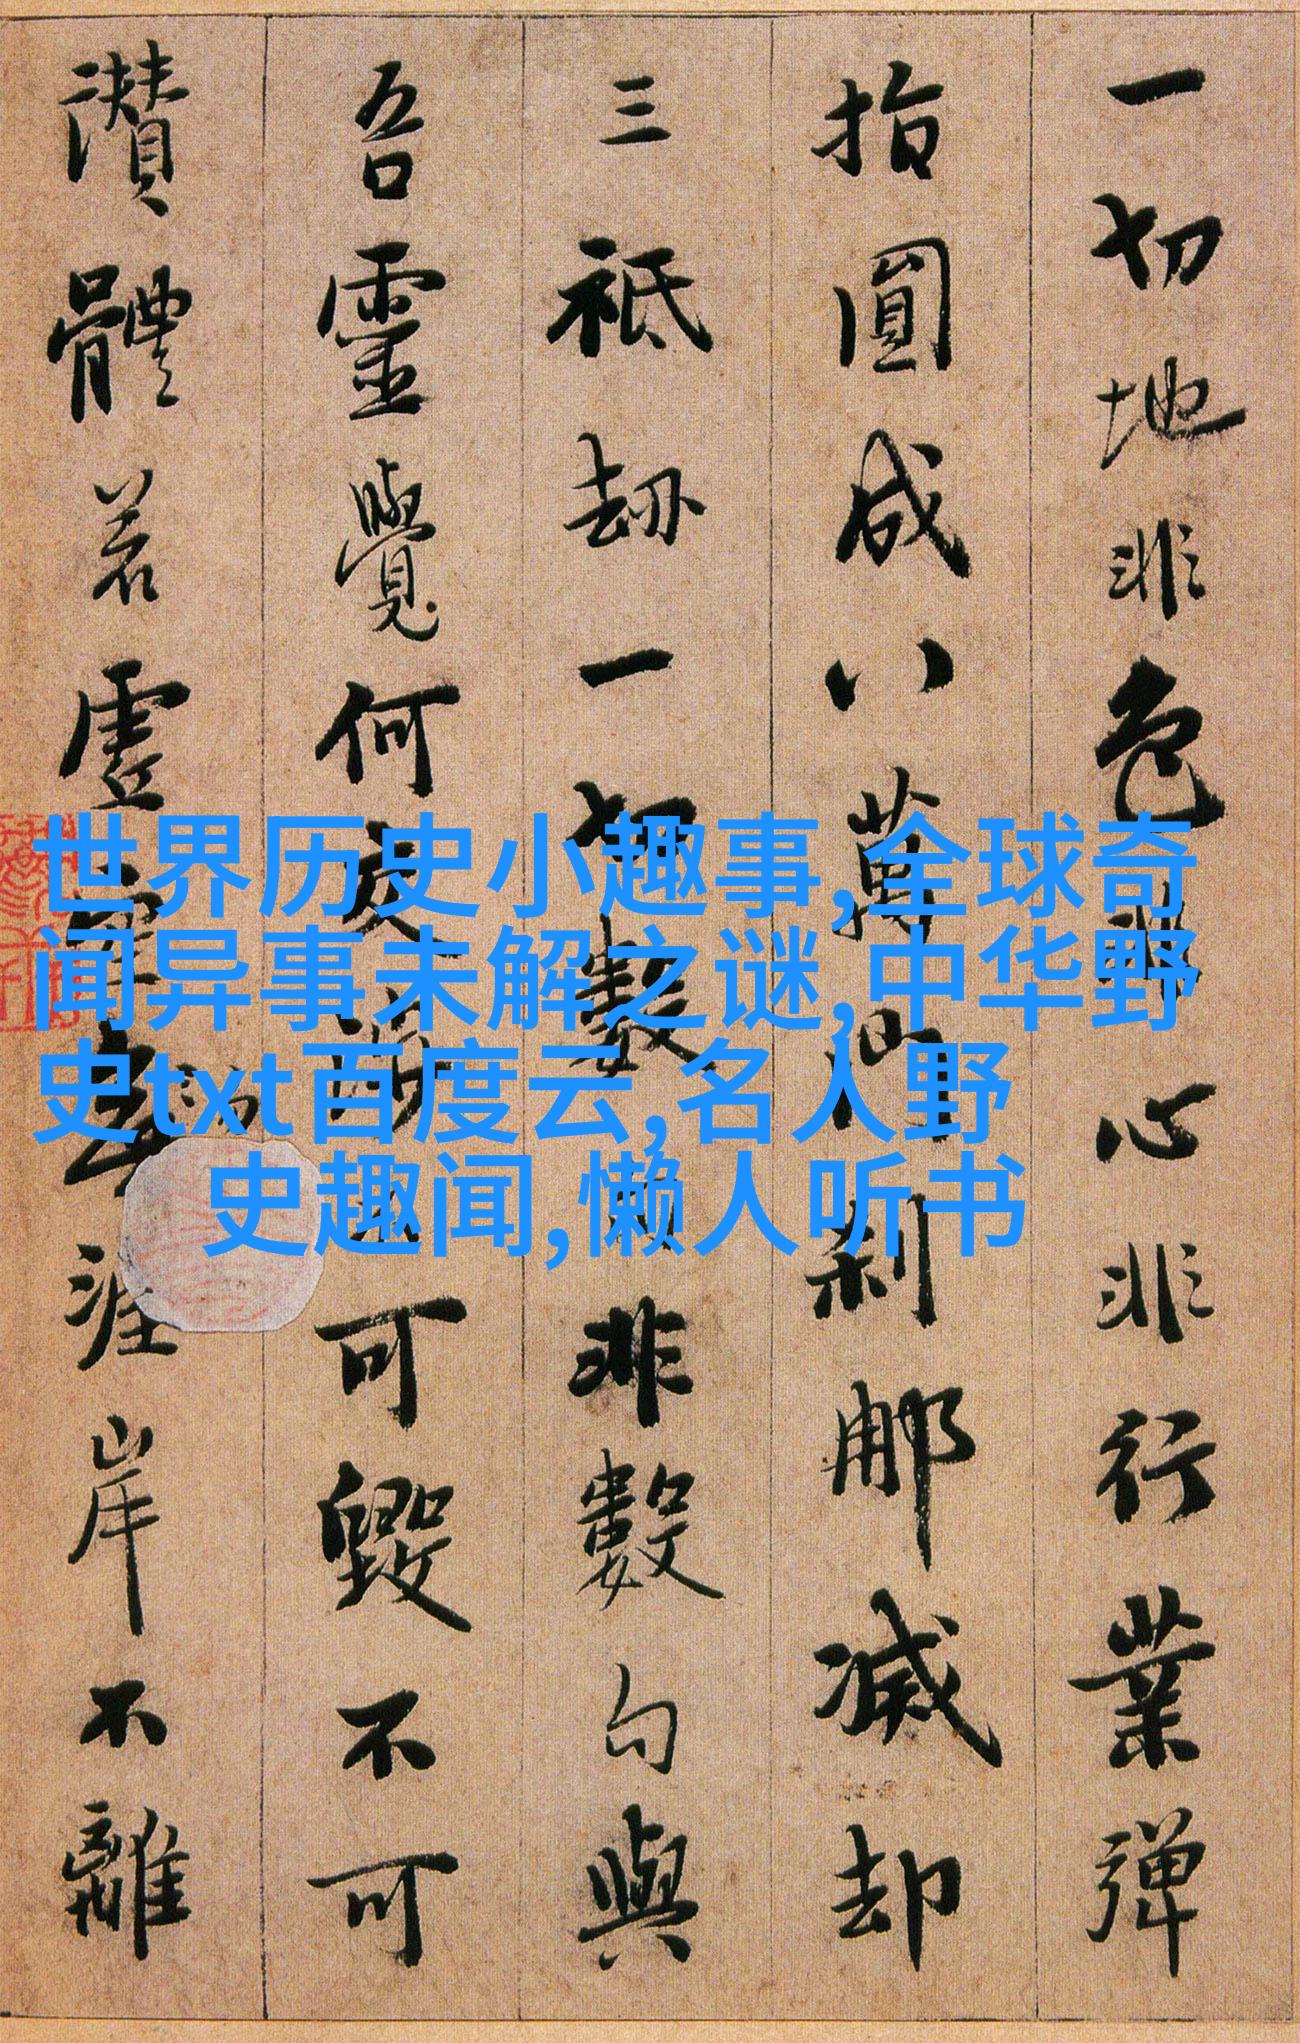 一切地非色非心非行業弹
指圓成八萬門刹那滅却
三祇劫一切數句非數句與
吾靈覺何交涉不可毀不可
讚體若虛空無涯岸不離
世界历史小趣事,全球奇
闻异事未解之谜,中华野
史txt百度云,名人野
史趣闻,懒人听书